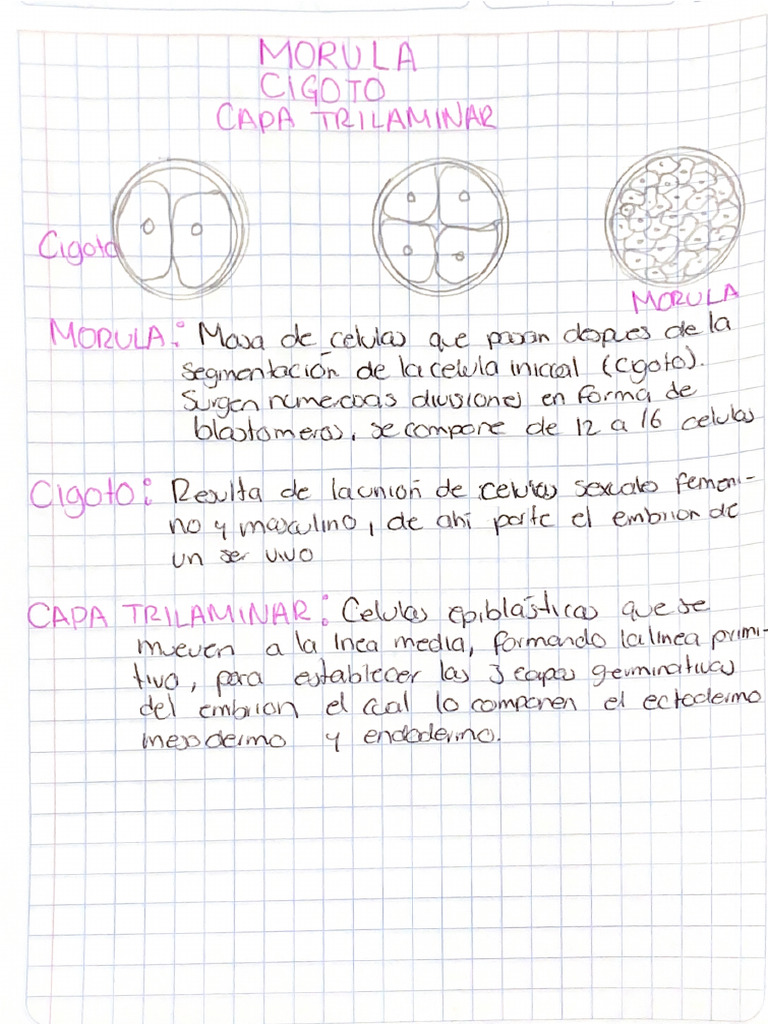 MORULA
CIGOTO
CAPA TRILAMINAR
Cigoto
MORULA
MORULA: Masa de celulas que pasan despues de la
segmentación de la celula inicial (cigoto).
Surgen numerosas divisiones en forma de
blastomeros, se compone de 12 a 16 celulas
Cigoto: Resulta de la unión de celulas sexuales femeni-
no y masculino, de ahi parte el embrion de
un ser vivo
CAPA TRILAMINAR: Celulas epiblásticas que se
mueven a la linea media, formando la linea primi-
tiva, para establecer las 3 capas germinativas
del embrion el cual lo componen el ectodermo
mesodermo y endodermo.